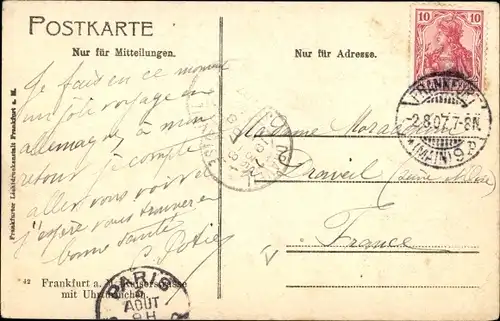 POSTKARTE
Nur für Mitteilungen.
Nur für Adresse.
10 10
FRANKFURT
-2.8.07. 7-8N.
(MAIN) 9 P
Je fais en ce moment
un joli voyage en
allemagne, à mon
retour je compte
aller vous voir et
j'espère vous trouver en
bonne santé
Madame
Draveil
France
Frankfurter Lichtdruckanstalt Frankfurt a. M.
42 Frankfurt a. M. Kaiserstrasse
mit Uhrtürmchen.
PARIS
AOUT